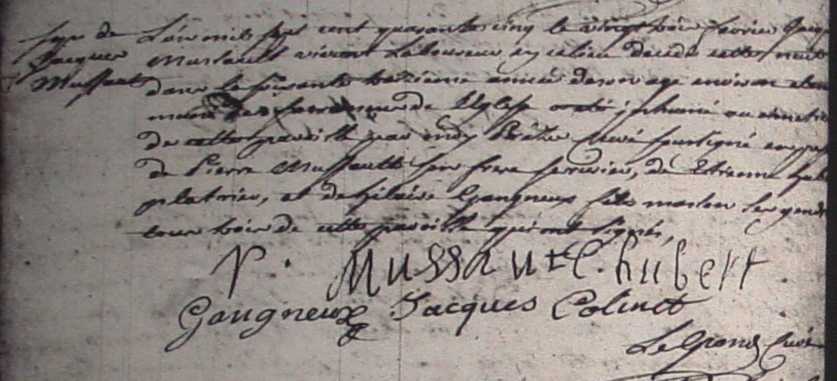 Sepr de
Jacques
Mussault
L'an mil sept cent quarante cinq le vingt trois fevrier
Jacques Mussault vivant Laboureur en ce lieu decedé cette nuit
dans la soixante treizieme année de son age environ
des sacremens de l'Eglise a eté inhumé au cimetiere
de cette paroisse par moy Prêtre curé soussigné
de Pierre Mussault son frere serrurier, de Etienne
platrier, et de hilaire Gangneux fils
tous trois de cette paroisse qui ont signés
P. Mussault E. hubert
Gangneux Jacques Colinet
Le Grand Curé